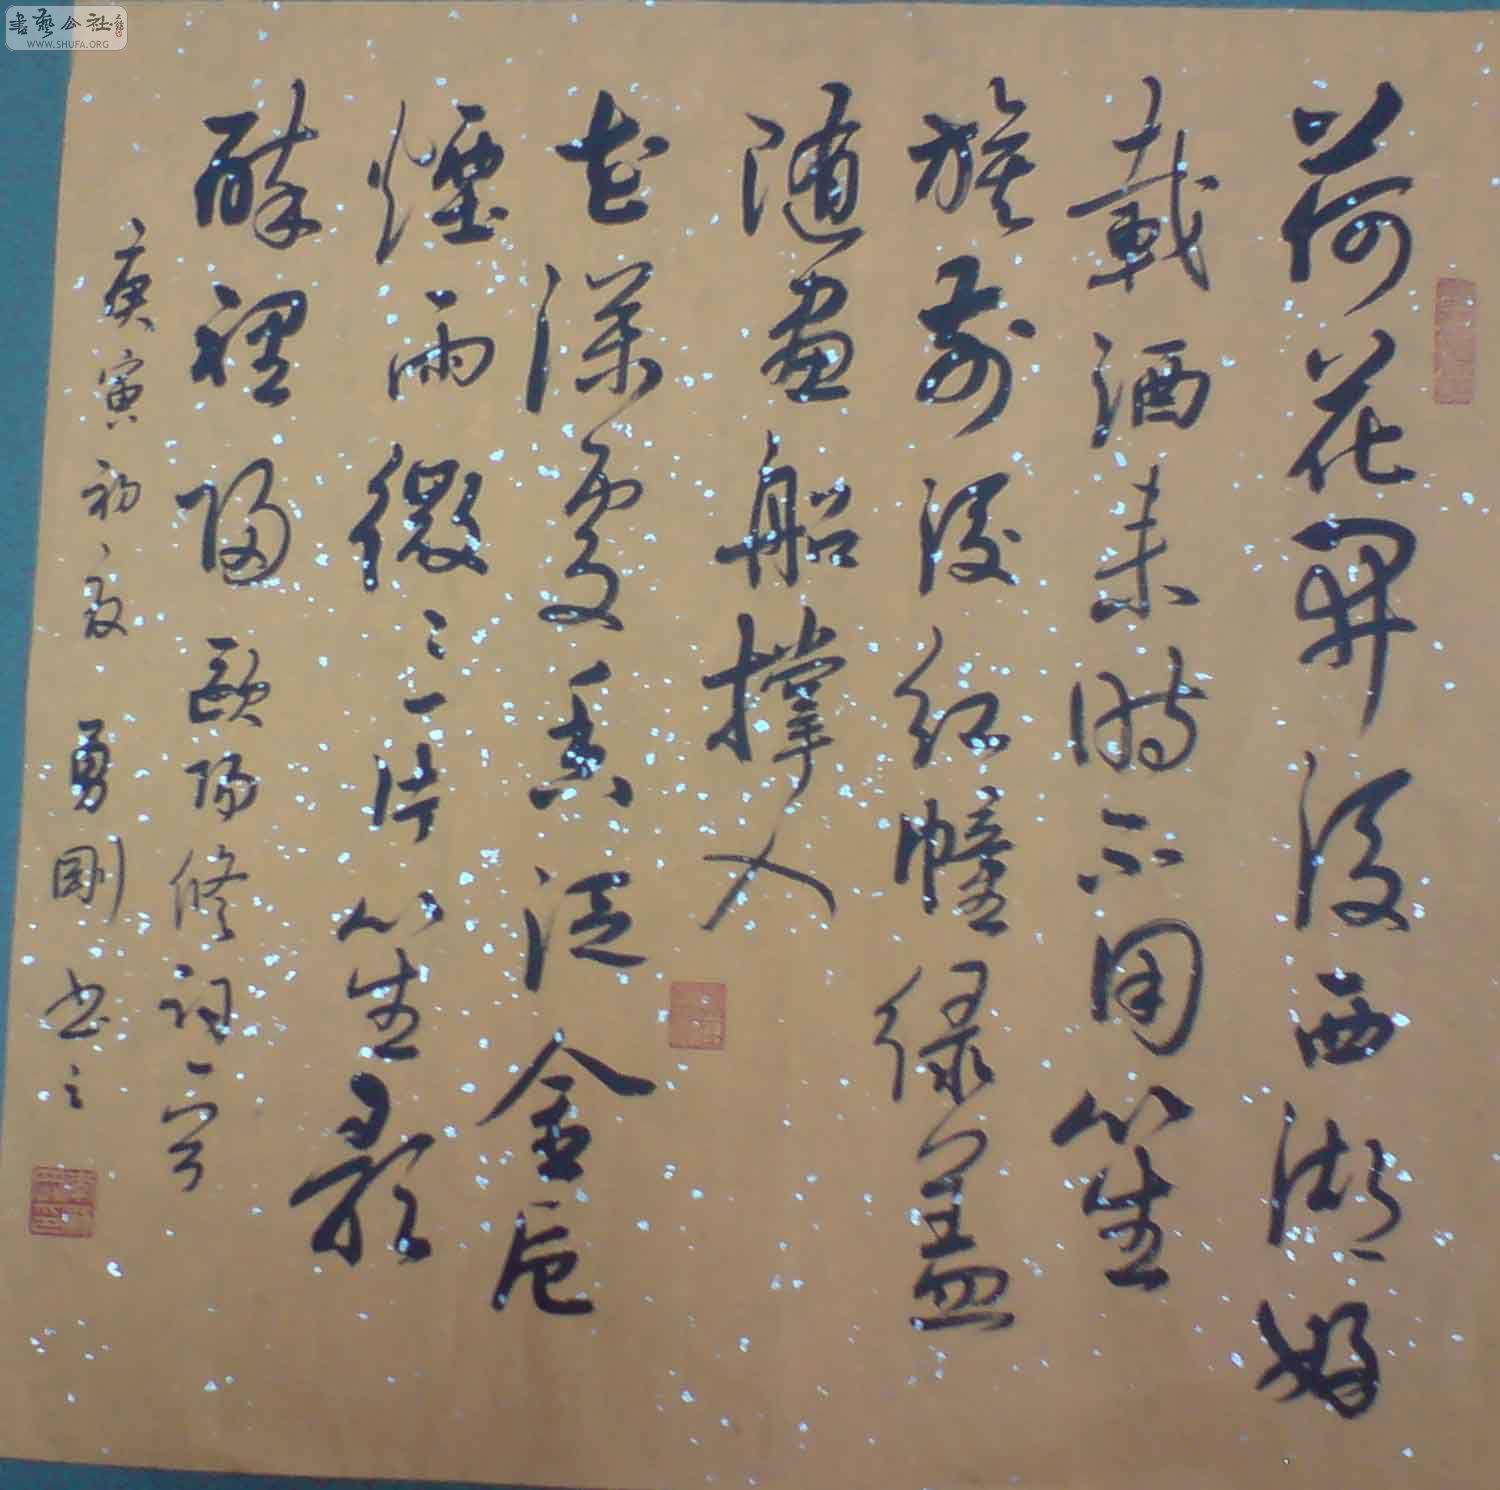 荷花開後西湖好
載酒来時不用笙
旗前後紅幢緑蓋
随畫船撑入
花深處香泛金卮
煙雨微〻一片笙歌
醉裡歸 歐陽修詞一首
庚寅初夏 勇剛書之
書藝公社
WWW.SHUFA.ORG